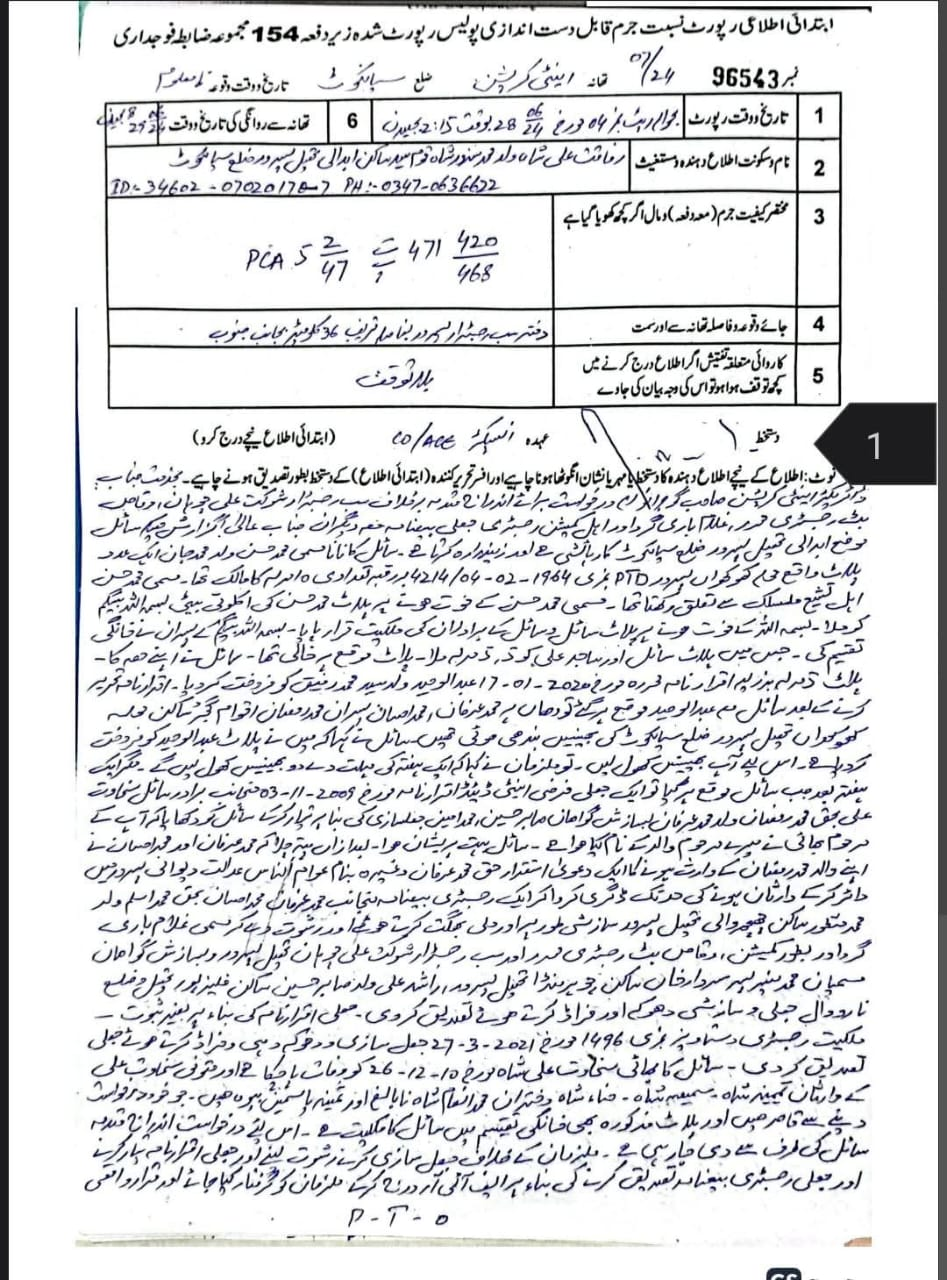 ابتدائی اطلاعی رپورٹ نسبت جرم قابل دست اندازی پولیس رپورٹ شدہ زیر دفعہ 154 مجموعہ ضابطہ فوجداری
نمبر 96543 07/24 تھانہ اینٹی کرپشن ضلع سیالکوٹ تاریخ و وقت وقوعہ نامعلوم
1 تاریخ و وقت رپورٹ بحوالہ رپٹ نمبر 04 مورخہ 28 06/24 بوقت 2:15 بجے دن 6 تھانہ سے روانگی کی تاریخ و وقت
2 نام و سکونت اطلاع دہندہ و مستغیث رفاقت علی شاہ ولد محمد منور شاہ قوم سید ساکن ابدالی تحصیل پسرور ضلع سیالکوٹ
ID:- 34602-0702017-7 PH:- 0347-0636622
3 مختصر کیفیت جرم (معہ دفعہ) و مال اگر کچھ کھو یا گیا ہے
420/468 471 ت پ 5 2/47 PCA
4 جائے وقوعہ و فاصلہ تھانہ سے اور سمت دفتر سب رجسٹرار پسرور بفاصلہ تقریباً 36 کلومیٹر بجانب جنوب
5 کاروائی متعلقہ تفتیش اگر اطلاع درج کرنے میں
کچھ توقف ہوا ہو تو اس کی وجہ بیان کی جاوے بلا توقف
دستخط عہدہ انسپکٹر CO/ACE (ابتدائی اطلاع نیچے درج کرو)
1
نوٹ: اطلاع کے نیچے اطلاع دہندہ کا دستخط یا مہر یا نشان انگوٹھا ہونا چاہیے اور افسر تحریر کنندہ (ابتدائی اطلاع) کے دستخط بطور تصدیق ہونے چاہیے۔ بخدمت جناب
ڈائریکٹر اینٹی کرپشن صاحب گوجرانوالہ درخواست برائے اندراج مقدمہ برخلاف سب رجسٹرار شوکت علی چوہان، وقاص
بٹ رجسٹری محرر، غلام باری گرداور اہل کمیشن رجسٹری جعلی بیعنامہ دیگران جناب عالی! گزارش ہیکہ سائل
موضع ابدالی تحصیل پسرور ضلع سیالکوٹ کا رہائشی ہے اور زمیندارہ کرتا ہے۔ سائل کا نانا مسمی محمد حسن ولد محمد جان ایک عدد
پلاٹ واقع محلہ ککھواں پسرور PTD نمبری 4214/04-02-1964 برقبہ تعدادی 10 مرلہ کا مالک تھا۔ مسمی محمد حسن
اہل تشیع مسلک سے تعلق رکھتا تھا۔ مسمی محمد حسن کے فوت ہونے پر پلاٹ محمد حسن کی اکلوتی بیٹی بسم اللہ بیگم
کو ملا۔ بسم اللہ کے فوت ہونے پر پلاٹ سائل و سائل کے برادران کی ملکیت قرار پایا۔ بسم اللہ بیگم کے پسران نے خانگی
تقسیم کی۔ جس میں پلاٹ سائل اور ساجد علی کو 5، 5 مرلہ ملا۔ پلاٹ موقع پر خالی تھا۔ سائل نے اپنے حصہ کا
پلاٹ 5 مرلہ بذریعہ اقرارنامہ محررہ مورخہ 17-01-2020 عبدالوحید ولد سید محمد رفیق کو فروخت کر دیا۔ اقرارنامہ تحریر
کرنے کے بعد سائل معہ عبدالوحید موقع پر گئے تو وہاں پر محمد عرفان، محمد احسان پسران محمد رمضان اقوام ساکن محلہ
ککھواں تحصیل پسرور ضلع سیالکوٹ کی بھینسیں بندھی ہوئی تھیں۔ سائل نے کہا کہ میں نے پلاٹ عبدالوحید کو فروخت
کر دیا ہے۔ اس لیے آپ بھینسیں کھول لیں۔ تو ملزمان نے کہا کہ ایک ہفتہ کی مہلت دے دو بھینسیں کھول لیں گے۔ مگر ایک
ہفتہ بعد جب سائل موقع پر گیا تو ایک جعلی فرضی اینٹی ڈیٹڈ اقرارنامہ مورخہ 03-11-2009 منجانب برادر سائل سخاوت
علی بحق محمد رمضان ولد محمد عرفان بسازش گواہان صابر حسین، محمد امین جعلسازی کی بنا پر تیار کر کے سائل کو دکھایا کہ آپ کے
مرحوم بھائی نے میرے مرحوم والد کے نام لکھا ہے۔ سائل بہت پریشان ہوا۔ بعد ازاں پتہ چلا کہ محمد عرفان اور محمد احسان نے
اپنے والد محمد رمضان کے وارث ہونے کا ایک دعویٰ استقرار حق محمد عرفان وغیرہ بنام عوام الناس عدالت دیوانی پسرور میں
دائر کر کے وارثان ہونے کی حد تک ڈگری کروا کر ایک رجسٹری بیعنامہ منجانب محمد عرفان، محمد احسان بحق محمد اسلم ولد
محمد منظور ساکن تحصیل پسرور سازشی طور پر اور ملی بھگت کرتے ہوئے اور رشوت دے کر مسمی غلام باری
گرداور بطور کمیشن، وقاص بٹ رجسٹری محرر اور سب رجسٹرار شوکت علی چوہان تحصیل پسرور و بسازش گواہان
مسمیان محمد منیر پسر سردار خان ساکن تحصیل پسرور، راشد علی ولد صابر حسین ساکن تحصیل و ضلع
نارووال جعلی و سازشی دھوکے اور فراڈ کرتے ہوئے تصدیق کر دی۔ جعلی اقرارنامہ کی بناء پر بغیر ثبوت
ملکیت رجسٹری دستاویز نمبری 1496 مورخہ 27-3-2021 جعل سازی و دھوکہ دہی و فراڈ کرتے ہوئے جعلی
تصدیق کر دی۔ سائل کا بھائی سخاوت علی شاہ مورخہ 26-12-10 کو وفات پا چکا ہے اور متوفی سخاوت علی
کے وارثان شاہ، سمیعہ شاہ، حناء شاہ دختران محمد انعام شاہ نابالغ اور ثمینہ یاسمین بیوہ ہیں۔ جو خود درخواست
دینے سے قاصر ہیں اور پلاٹ مذکورہ بھی خانگی تقسیم میں سائل کا ملکیت ہے۔ اس لئے درخواست اندراج مقدمہ
سائل کی طرف سے دی جا رہی ہے۔ ملزمان کے خلاف جعل سازی کرنے رشوت لینے اور جعلی اقرارنامہ تیار کرنے
اور جعلی رجسٹری بیعنامہ تصدیق کرنے کی بناء پر ایف آئی آر درج کر کے ملزمان کو گرفتار کیا جائے اور قرار واقعی
P-T-O